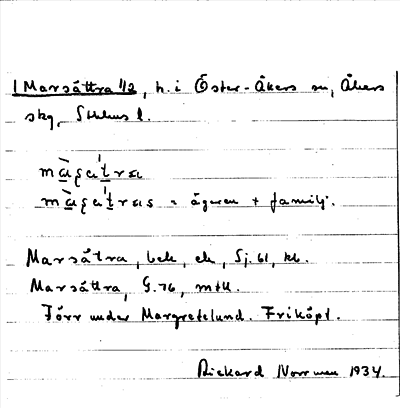 1 Marsättra 1/2, h. i Öster-Åkers sn, Åkers
skg, Sthlms l.
màgatra
màgatras = ägaren + familj.
Marsätra, bek, ek, Sj. 61, kb.
Marsättra, G. 76, mtk.
Förr under Margretelund. Friköpt.
Rickard Norrman 1934.